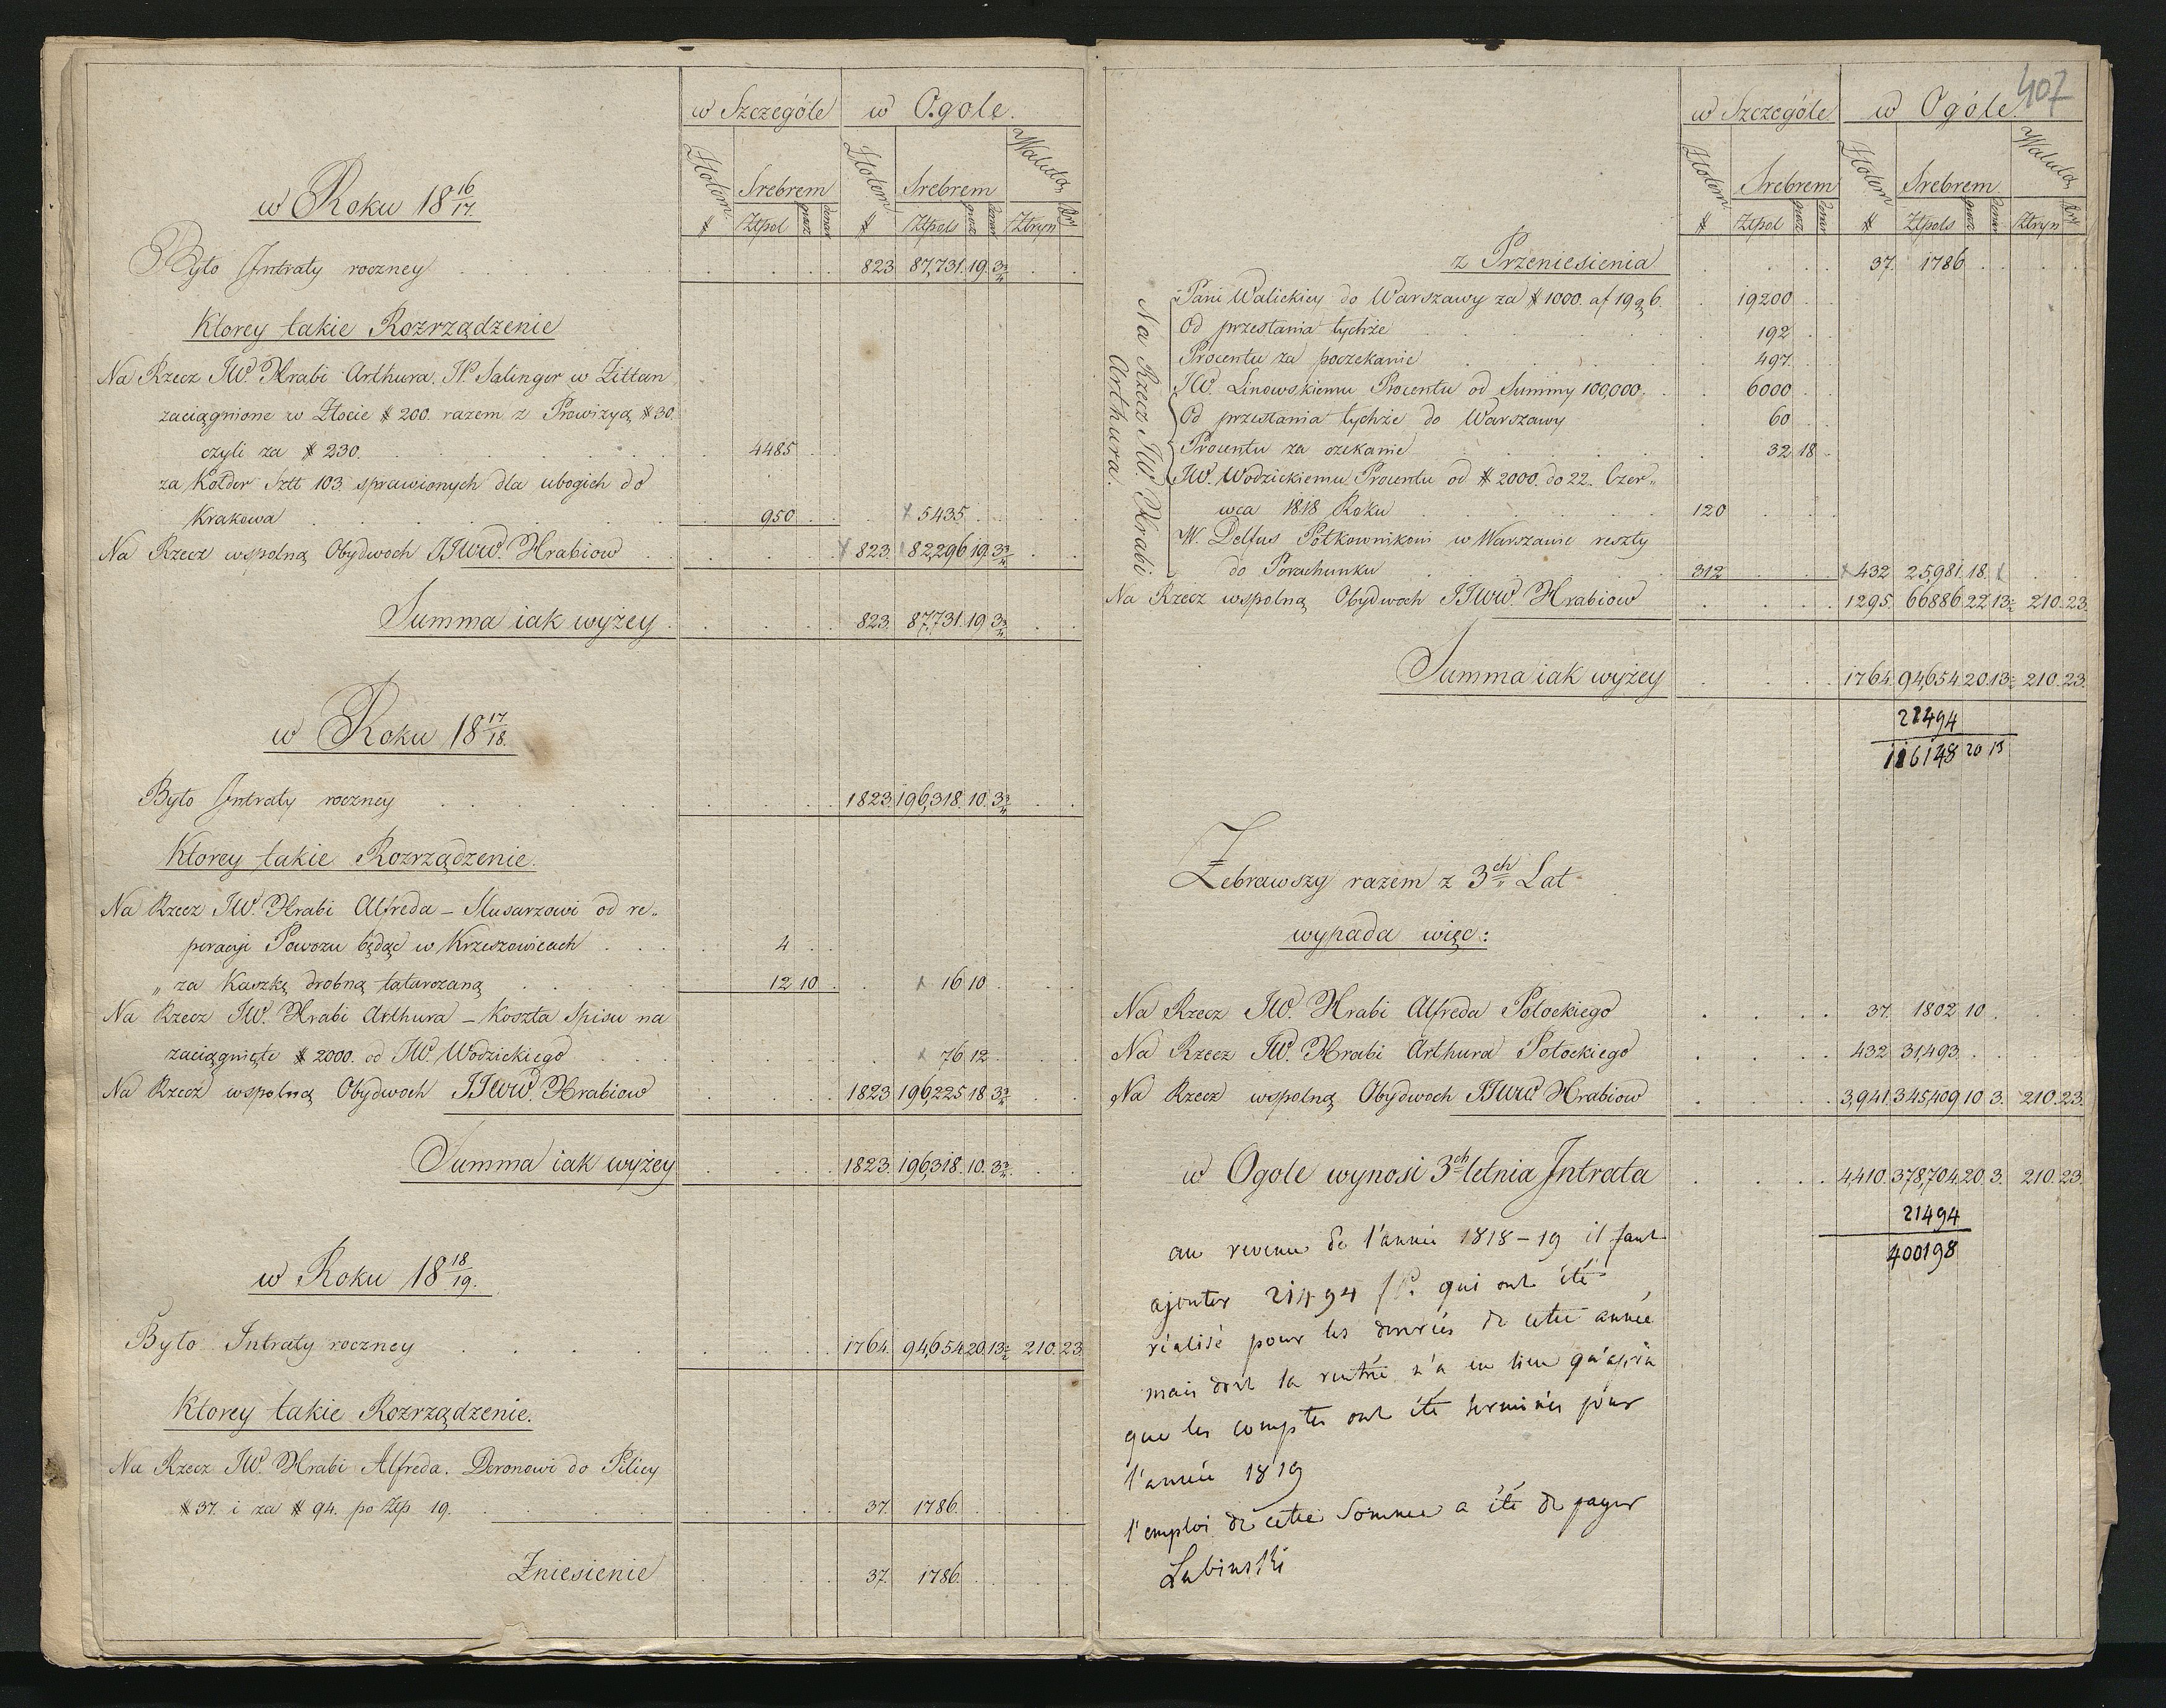 w Szczególe w Ogole.
Złotem Srebrem Złotem Srebrem Waluta
# Złpol grosz denar # Złpols grosz denar Złryn Xry
w Roku 18 16/17.
Było Intraty roczney 823. 87,731. 19. 3 3/4
Ktorey takie Rozrządzenie
Na Rzecz JW. Hrabi Arthura. JP. Salinger w Zittau
zaciągnione w Złocie # 200. razem z Prowizyą # 30.
czyli za # 230. 4485
za Kołder Sztt 103. sprawionych dla ubogich do
Krakowa 950 5435
Na Rzecz wspolną Obydwoch JJWW. Hrabiow 823. 82,296 19. 3 3/4
Summa iak wyżey 823. 87,731. 19 3 3/4
w Roku 18 17/18.
Było Intraty roczney 1823. 196,318. 10. 3 3/4
Ktorey takie Rozrządzenie.
Na Rzecz JW. Hrabi Alfreda – Slusarzowi od re„
peracyi Powozu będąc w Krzeszowicach 4
„ za Kaszkę drobną tatarczaną 12 10 16 10
Na Rzecz JW. Hrabi Arthura – Koszta Spisu na
zaciągnięte # 2000. od JW. Wodzickiego 76 12
Na Rzecz wspolną Obydwoch JJWW. Hrabiow 1823 196,225 18. 3 3/4
Summa iak wyżey 1823. 196,318. 10. 3 3/4
w Roku 18 18/19.
Było Intraty roczney 1764. 94,654 20. 13 2/4 210. 23.
Ktorey takie Rozrządzenie.
Na Rzecz JW. Hrabi Alfreda. Doronowi do Pilicy
# 37. i za # 94. po Złp. 19. 37. 1786.
Zniesienie 37. 1786.
407
w Szczególe w Ogóle.
Złotem Srebrem Złotem Srebrem Waluta
# Złpol grosz denar # Złpols grosz denar Złryn Xry
z Przeniesienia 37. 1786
Na Rzecz JW. Hrabi
Arthura.
Pani Walickiey do Warszawy za # 1000. af 19 6. 19200
Od przesłania tychże 192
Procentu za poczekanie 497
JW. Linowskiemu Procentu od Summy 100,000. 6000
Od przesłania tychże do Warszawy 60
Procentu za czekanie 32 18
JW. Wodzickiemu Procentu od # 2000. do 22. Czer„
wca 1818 Roku 120
W. Delfus Połkownikowi w Warszawie reszty
do Porachunku 312 432 25,981. 18.
Na Rzecz wspolną Obydwoch JJWW. Hrabiow 1295. 66886 22 13 2/4 210. 23.
Summa iak wyżey 1764. 94,654 20. 13 2/4 210. 23.
21494
116148 20 13
Zebrawszy razem z 3ch Lat
wypada więc:
Na Rzecz JW. Hrabi Alfreda Potockiego 37. 1802 10
Na Rzecz JW. Hrabi Arthura Potockiego 432 31,493.
Na Rzecz wspolną Obydwoch JJWW Hrabiow 3,941. 345,409 10 3. 210. 23.
w Ogole wynosi 3ch letnia Intrata 4,410. 378,704. 20. 3. 210. 23.
21494
400198
au revenu de l'année 1818–19 il faut
ajouter 21494 fP. qui ont été
réalisé pour les denrées de cette année
mais dont la rentrée n'a eu lieu qu'après
que les comptes ont été terminés pour
l'année 1819
l'emploi de cette somme a été de payer
Lubinski